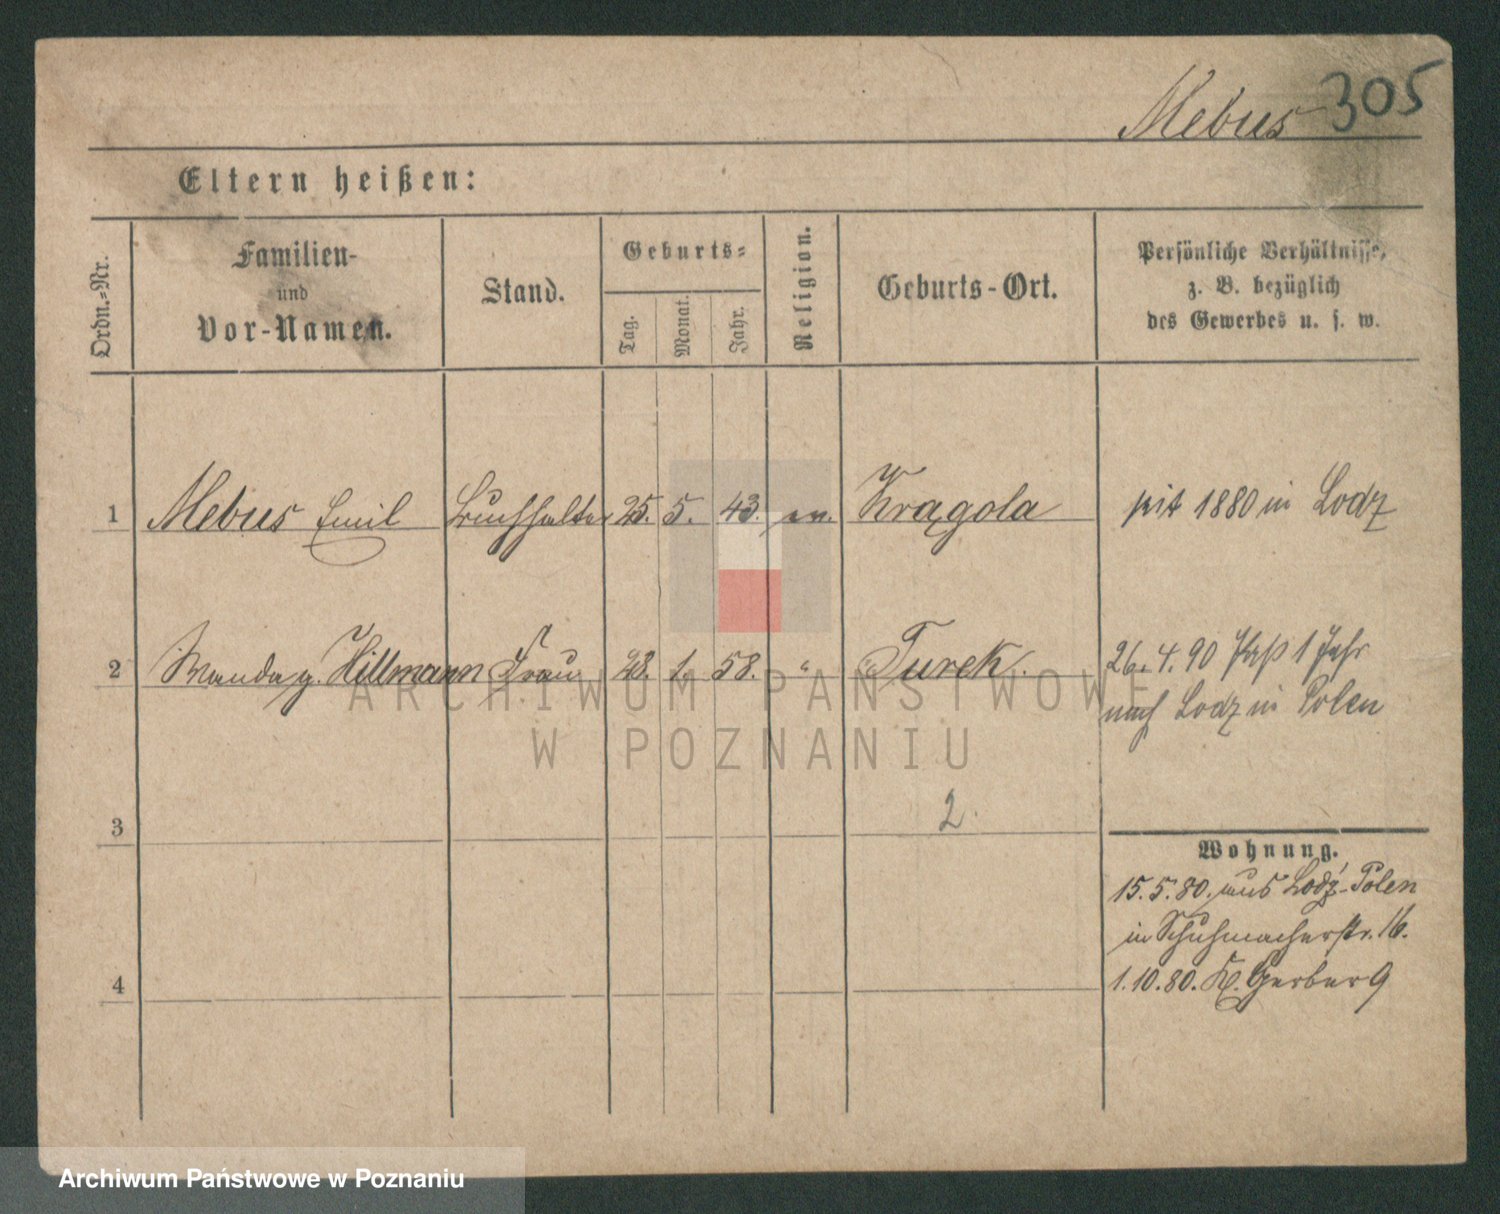 Mebus 305
Eltern heißen:
Ordn.-Nr.
Familien-
und
Vor-Namen.
Stand.
Geburts-
Tag.
Monat.
Jahr.
Religion.
Geburts-Ort.
Persönliche Verhältnisse,
z. B. bezüglich
des Gewerbes u. s. w.
1 Mebus Emil Buchhalter 25. 5. 43. ev. Krągola seit 1880 in Lodz
2 Wanda g. Hillmann Frau 28. 1. 58. " Turek. 26.4.90 Paß 1 Jahr
nach Lodz in Polen
ARCHIWUM PAŃSTWOWE
W POZNANIU
3 2
Wohnung.
15.5.80. aus Lodź-Polen
in Schuhmacherstr. 16.
4 1.10.80. K. Gerber 9
Archiwum Państwowe w Poznaniu